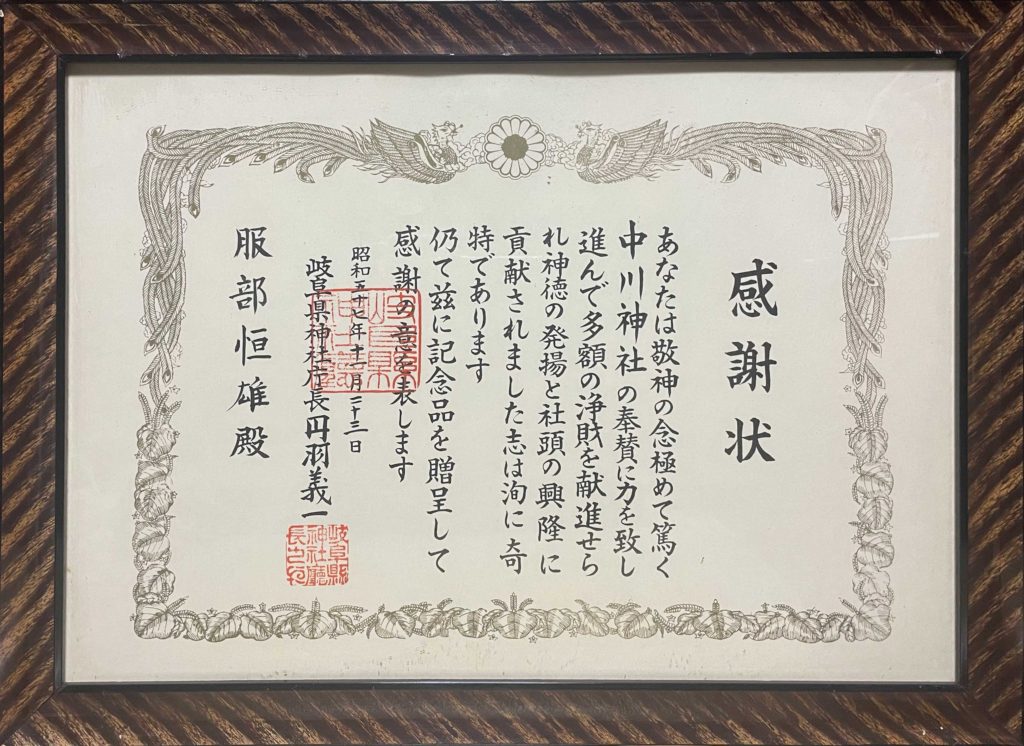 感謝状
あなたは敬神の念極めて篤く
中川神社の奉賛に力を致し
進んで多額の浄財を献進せら
れ神徳の発揚と社頭の興隆に
貢献されました志は洵に奇
特であります
仍て茲に記念品を贈呈して
感謝の意を表します
昭和五十七年十一月二十三日
岐阜県神社庁長円羽義一
服部恒雄殿
岐阜縣
神社廳
長之印